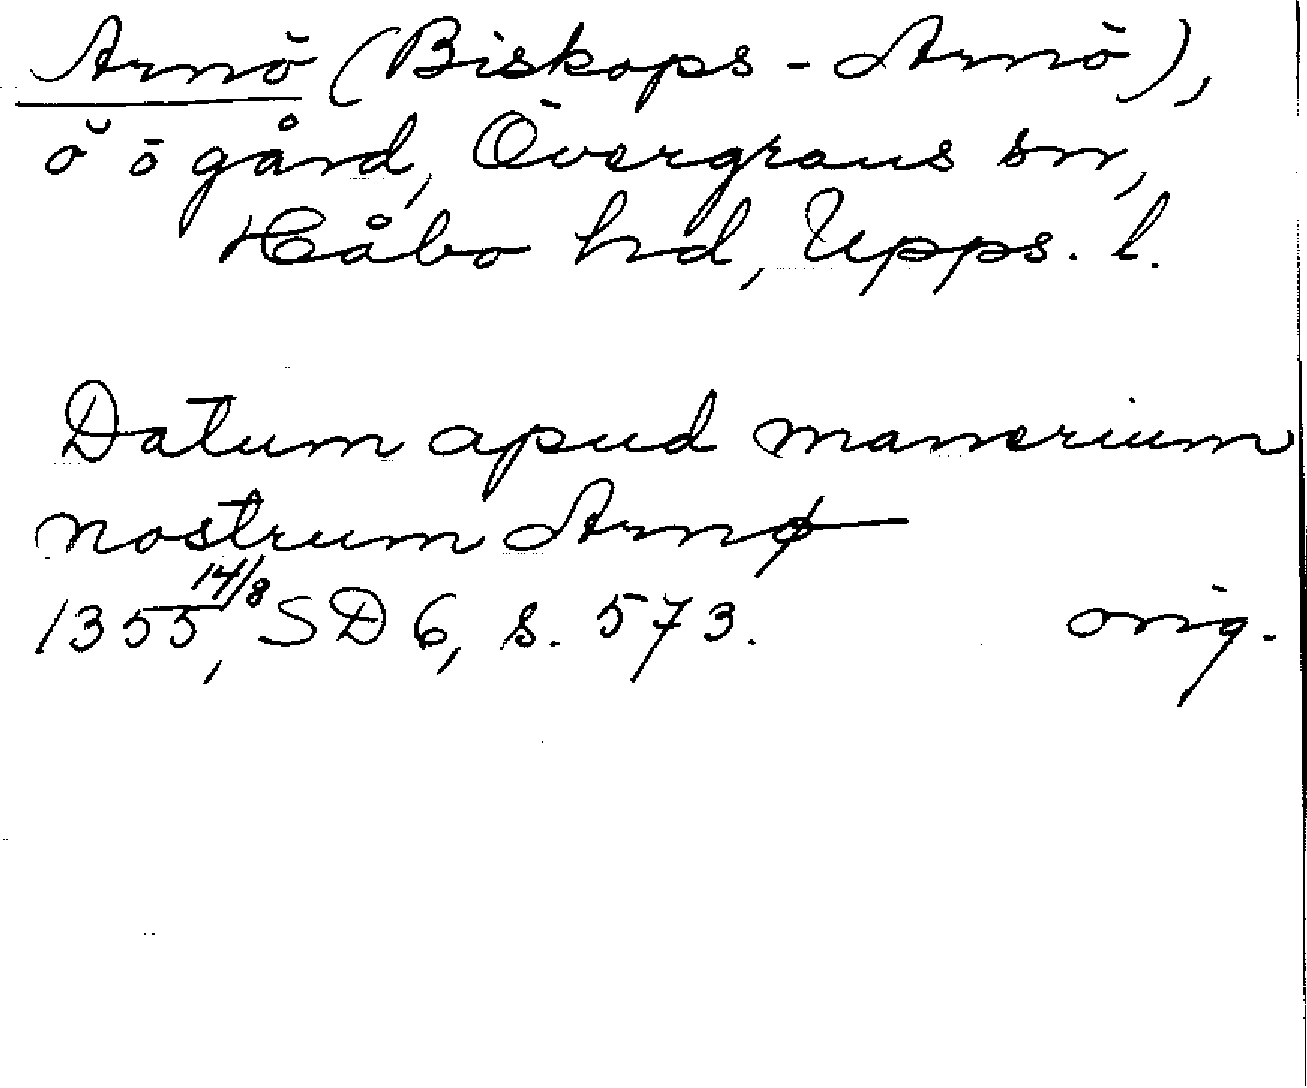 Arnö (Biskops-Arnö),
ö o gård, Övergrans sn,
Håbo hd, Upps. l.
Datum apud manerium
nostrum Arnø
1355 14/8, SD 6, s. 573. orig.